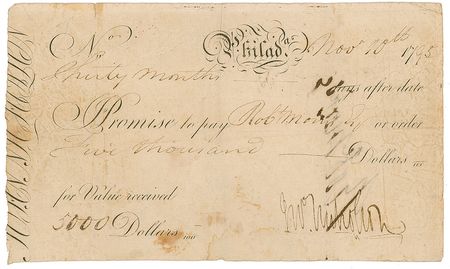 No. Philada. Nov 1795
Thirty months days after date
Promise to pay Robt Morris Esq or order
five thousand Dollars
for Value received
5000 Dollars Jno Nicholson